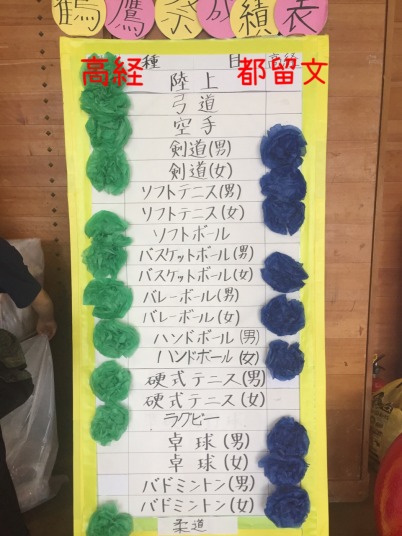 鶴鷹祭成績表
種 目 高経
高経 都留文
陸上
弓道
空手
剣道(男)
剣道(女)
ソフトテニス(男)
ソフトテニス(女)
ソフトボール
バスケットボール(男)
バスケットボール(女)
バレーボール(男)
バレーボール(女)
ハンドボール(男)
ハンドボール(女)
硬式テニス(男)
硬式テニス(女)
ラグビー
卓球(男)
卓球(女)
バドミントン(男)
バドミントン(女)
柔道